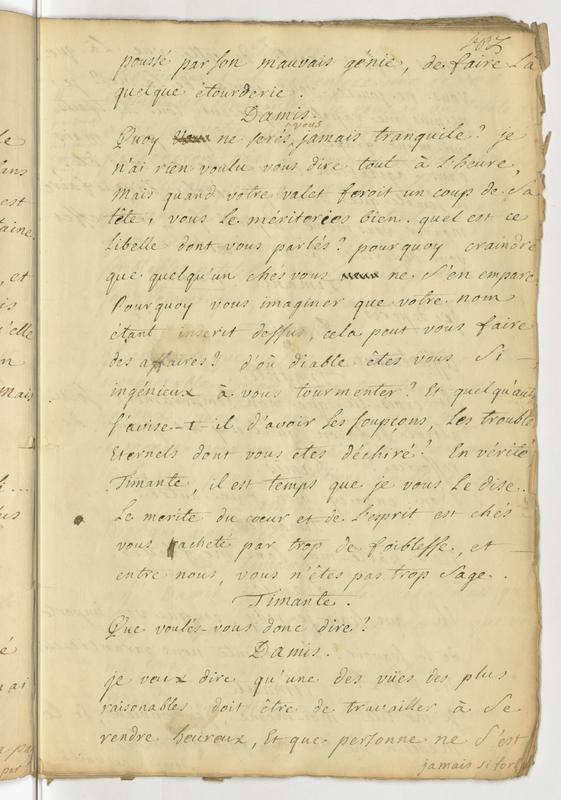 poussé par son mauvais génie, de faire La
quelque etourderie.
Damis.
Quoy ne serés vous jamais tranquile? je
n'ai rien voulu vous dire tout à L'heure,
Mais quand votre valet feroit un coup de Sa
tête, vous Le mériteriés bien. quel est ce
Libelle dont vous parlés? pourquoy craindre
que quelqu'un chés vous ne S'en empare
Pourquoy vous imaginer que votre nom
étant inscrit dessus, cela peut vous faire
des affaires? d'où diable êtes vous Si
ingénieux à vous tourmenter? Et quelqu'autre
s'avise-t-il d'avoir Les soupçons, Les trouble
Eternels dont vous etes déchiré? En vérité
Timante, il est temps que je vous Le dise.
Le merite du cœur et de L'esprit est chés
vous racheté par trop de foiblesse, et
entre nous, vous n'êtes pas trop Sage.
Timante.
Que voulés-vous donc dire?
Damis.
je veux dire qu'une des vües des plus
raisonables doit être de travailler à Se
rendre heureux, Et que personne ne S'est
jamais si fort